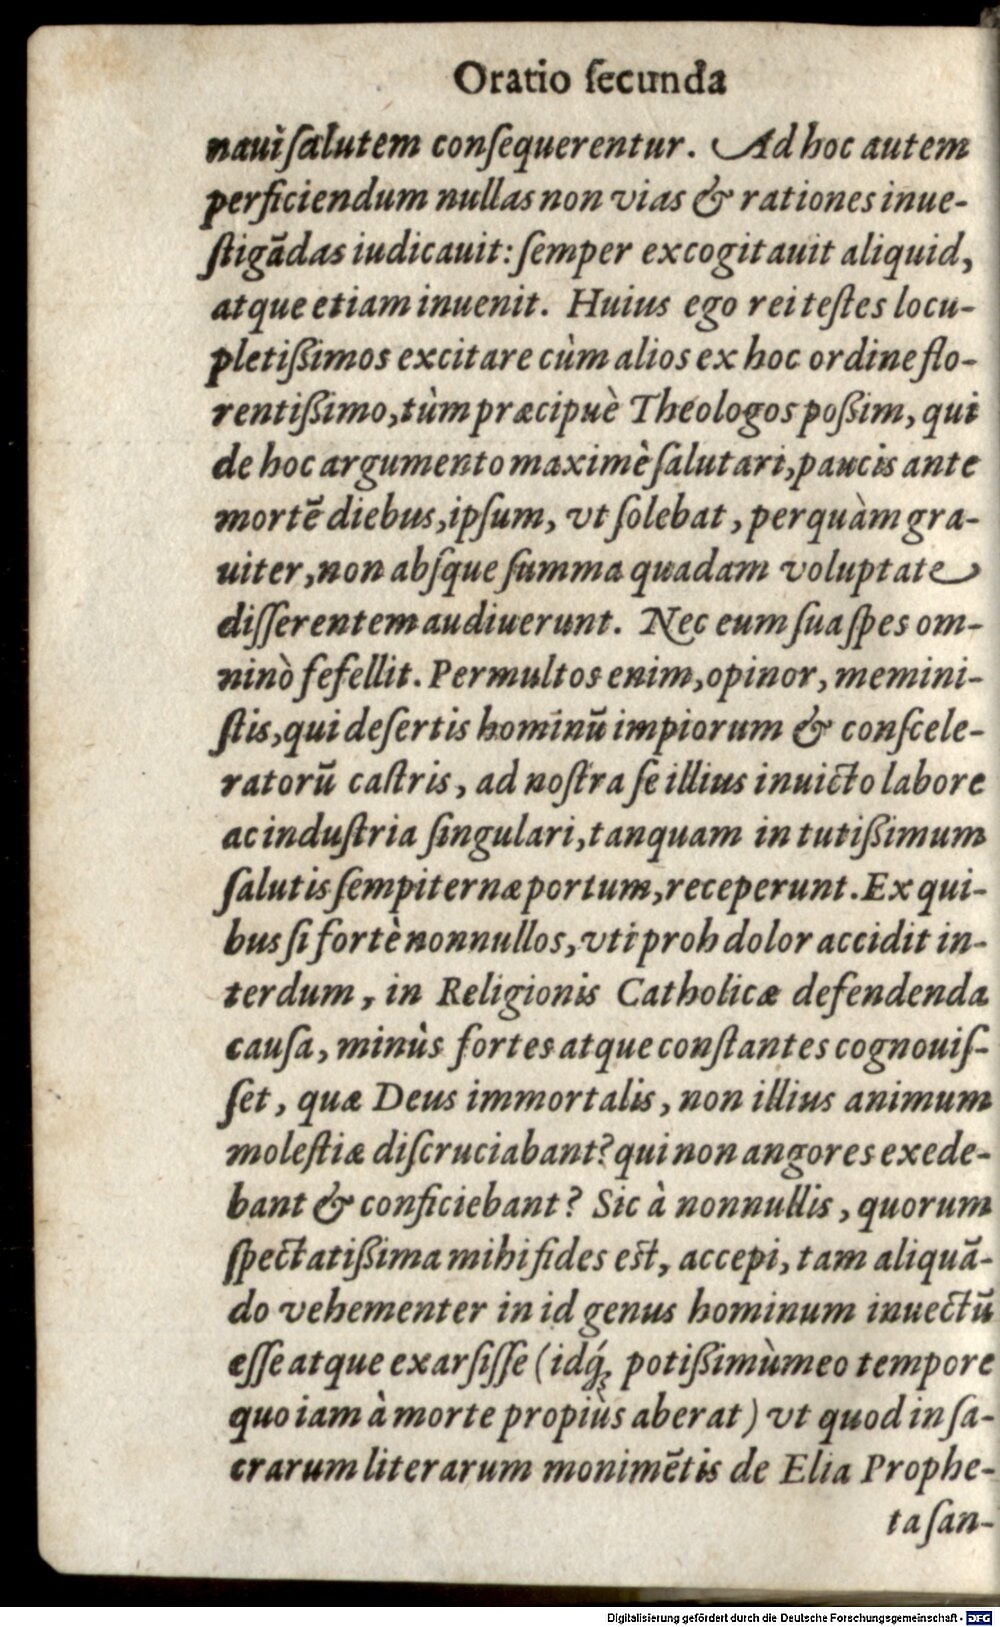 Oratio ſecunda
naui ſalutem conſequerentur. Ad hoc autem
perficiendum nullas non vias & rationes inue-
ſtigãdas iudicauit: ſemper excogitauit aliquid,
atque etiam inuenit. Huius ego rei teſtes locu-
pletißimos excitare cùm alios ex hoc ordine flo-
rentißimo, tùm præcipuè Theologos poßim, qui
de hoc argumento maximè ſalutari, paucis ante
mortẽ diebus, ipſum, vt ſolebat, perquàm gra-
uiter, non abſque ſumma quadam voluptate
diſſerentem audiuerunt. Nec eum ſua ſpes om-
ninò fefellit. Permultos enim, opinor, memini-
ſtis, qui deſertis hominũ impiorum & conſcele-
ratorũ caſtris, ad noſtra ſe illius inuicto labore
ac induſtria ſingulari, tanquam in tutißimum
ſalutis ſempiternæ portum, receperunt. Ex qui-
bus ſi fortè nonnullos, vti proh dolor accidit in-
terdum, in Religionis Catholicæ defendenda
cauſa, minùs fortes atque conſtantes cognouiſ-
ſet, quæ Deus immortalis, non illius animum
moleſtiæ diſcruciabant? qui non angores exede-
bant & conficiebant? Sic à nonnullis, quorum
ſpectatißima mihi fides eſt, accepi, tam aliquã-
do vehementer in id genus hominum inuectũ
eſſe atque exarſiſſe (idq́; potißimùm eo tempore
quo iam à morte propiùs aberat) vt quod in ſa-
crarum literarum monimẽtis de Elia Prophe-
ta ſan-
Digitalisierung gefördert durch die Deutsche Forschungsgemeinschaft - DFG